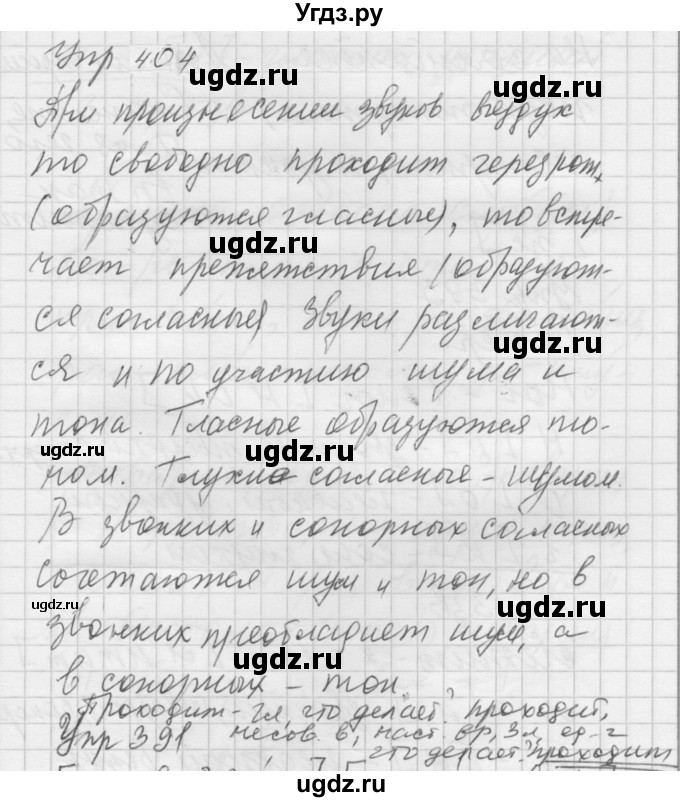 Угдз.ру
Упр 404
ugdz.ru
При произнесении звуков воздух
ugdz.ru ugdz.ru
то свободно проходит через рот,
(образуются гласные), то встре-
ugdz.ru
чает препятствия (образуют-
ся согласные) Звуки различают-
ugdz.ru
ся и по участию шума и
тона. Гласные образуются то-
ugdz.ru ugdz.ru
ном. Глухие согласные - шумом.
В звонких и сонорных согласных
сочетаются шум и тон, но в
ugdz.ru ugdz.ru
звонких преобладает шум, а
ugdz.ru
в сонорных - тон.
Проходит - гл, что делает? проходит,
Упр 391 несов. в, наст. вр, 3 л, ед. ч
что делает? проходит
ugdz.ru